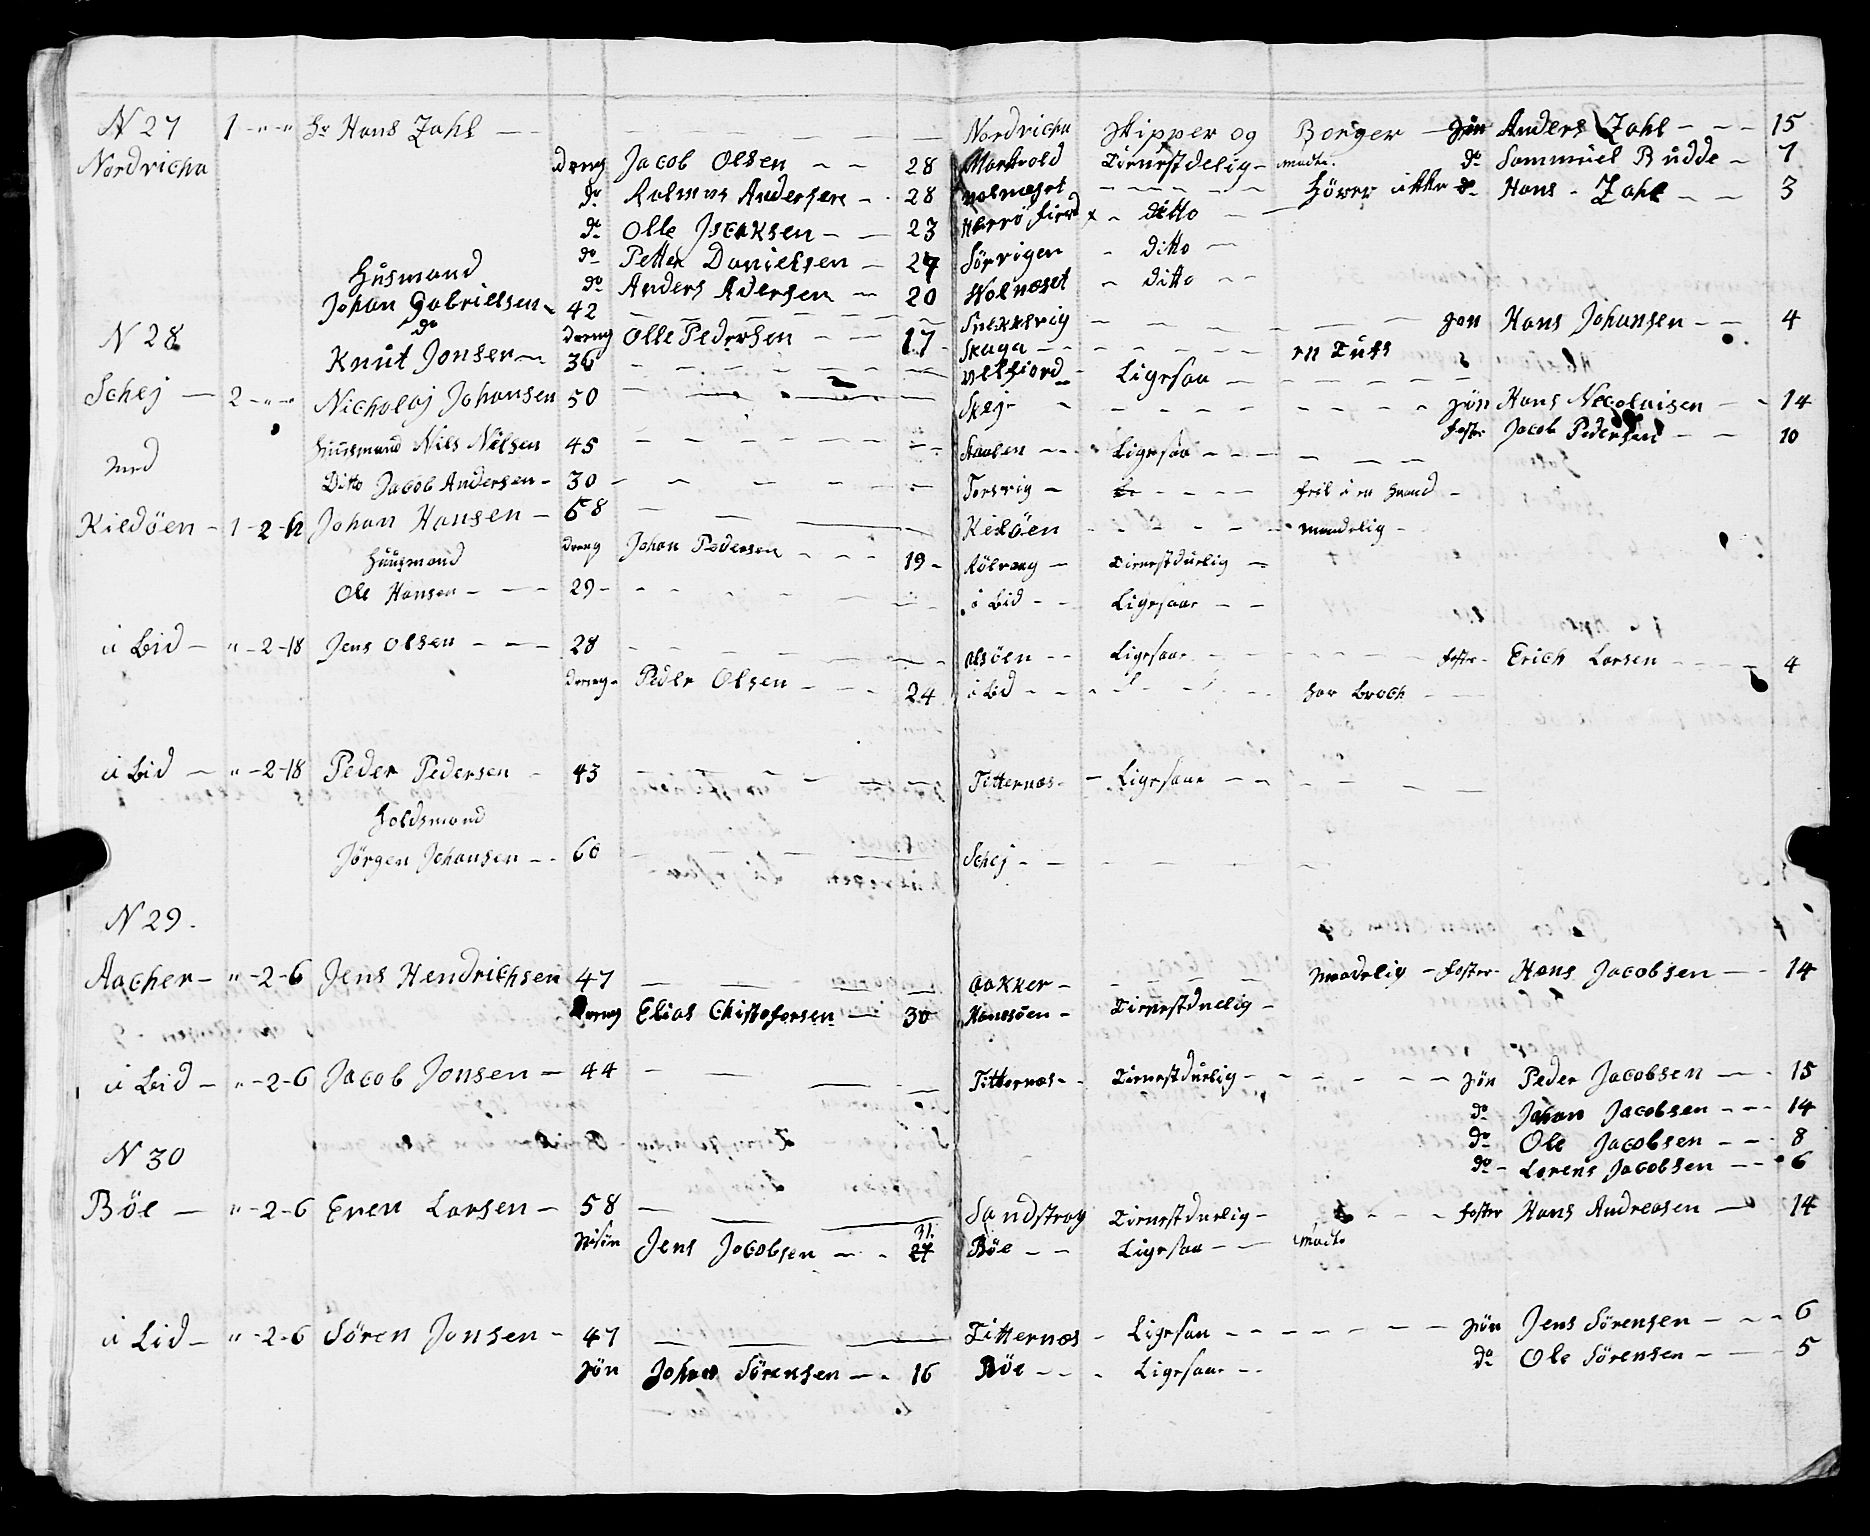 N 27 1 - " - " Hr Hans Zahl - - Nordvicha Skipper og Borger - Søn Anders Zahl - - - 15
Nordvicha dreng Jacob Olsen - - 28 Markvold Tienestdelig - do Sammuel Budde - 7
do Rasmus Andersen - 28 Holmeset - - - Hörer ikke do Hans - Zahl - - 3
do Olle Jsacksen - - 23 - ditto -
do Petter Danielsen - 24 Sörvigen - ditto -
Husmand do Anders Adersen - 20 Holmeset - ditto - -
Johan Gabrielsen - 42 - - - Snekkevig - - - Søn Hans Johansen - - 4
N 28 do dreng Olle Pedersen - - 17 - Skaga - - - en
Knut Jonsen - 36 - - - Velfiord - Ligesaa - - -
Schej - 2 - " - " Nicholaj Johansen 50 - - - Skej - - - - Søn Hans Nicolaisen - - 14
foster Jacob Pedersen - - 10
Huusmand Nils Nilsen 45 - - - Ligesaa - - -
med
Ditto Jacob Andersen - 30 - - - Torsvig - - - - feil i en Haand -
Kieldöen - 1 - 2 - 12 Johan Hansen - 68 - - Kieldöen - - - maadelig -
Huusmand dreng Johan Pedersen - - - 19 - Rölvaag - Tienestdyelig -
Ole Hansen - - - 29 - - - i Lid - - Ligesaae - -
i Lid - " - 2 - 18 Jens Olsen - - - 28 - - - Olsöen - - Ligesaae - - - foster - Erich Larsen - - - 4
dreng - Peder Olsen - - - 24 i Lid - - - - har Broch - -
i Lid - " - 2 - 18 Peder Pedersen - 43 - - - Titternæs - - Ligesaae - - -
Holdsmand
Jörgen Johansen - - 60 - - - Schej - - - -
N 29.
Aacher - " - 2 - 6 Jens Hendrichsen 47 - - - Aakker - - - - Maadelig - foster - Hans Jacobsen - - 14
Dreng Elias Chistofersen - 30 Hanesöen - Tienestduelig -
i Lid - " - 2 - 6 Jacob Jonsen - 44 - - - Titternæs - - Tienestduelig - - - Søn Peder Jacobsen - - 15
do Johan Jacobsen - - - 14
do Ole Jacobsen - - - 8
N 30 do - Lorens Jacobsen - - 6
Böe - " - 2 - 6 Even Larsen - 58 - - - Sandstrag Tienestduelig - - - - foster Hans Andreasen - 14
Jens Jacobsen - - - Böe - - Ligesaa - -
i Lid - " - 2 - 6 Sören Jonsen - 47 - - - Titternæs - Ligesaa - - - Søn Jens Sörensen - - - 6
Søn Johan Sörensen - - 16 Böe - - - Ligesaae - - do Ole Sörensen - - - 5